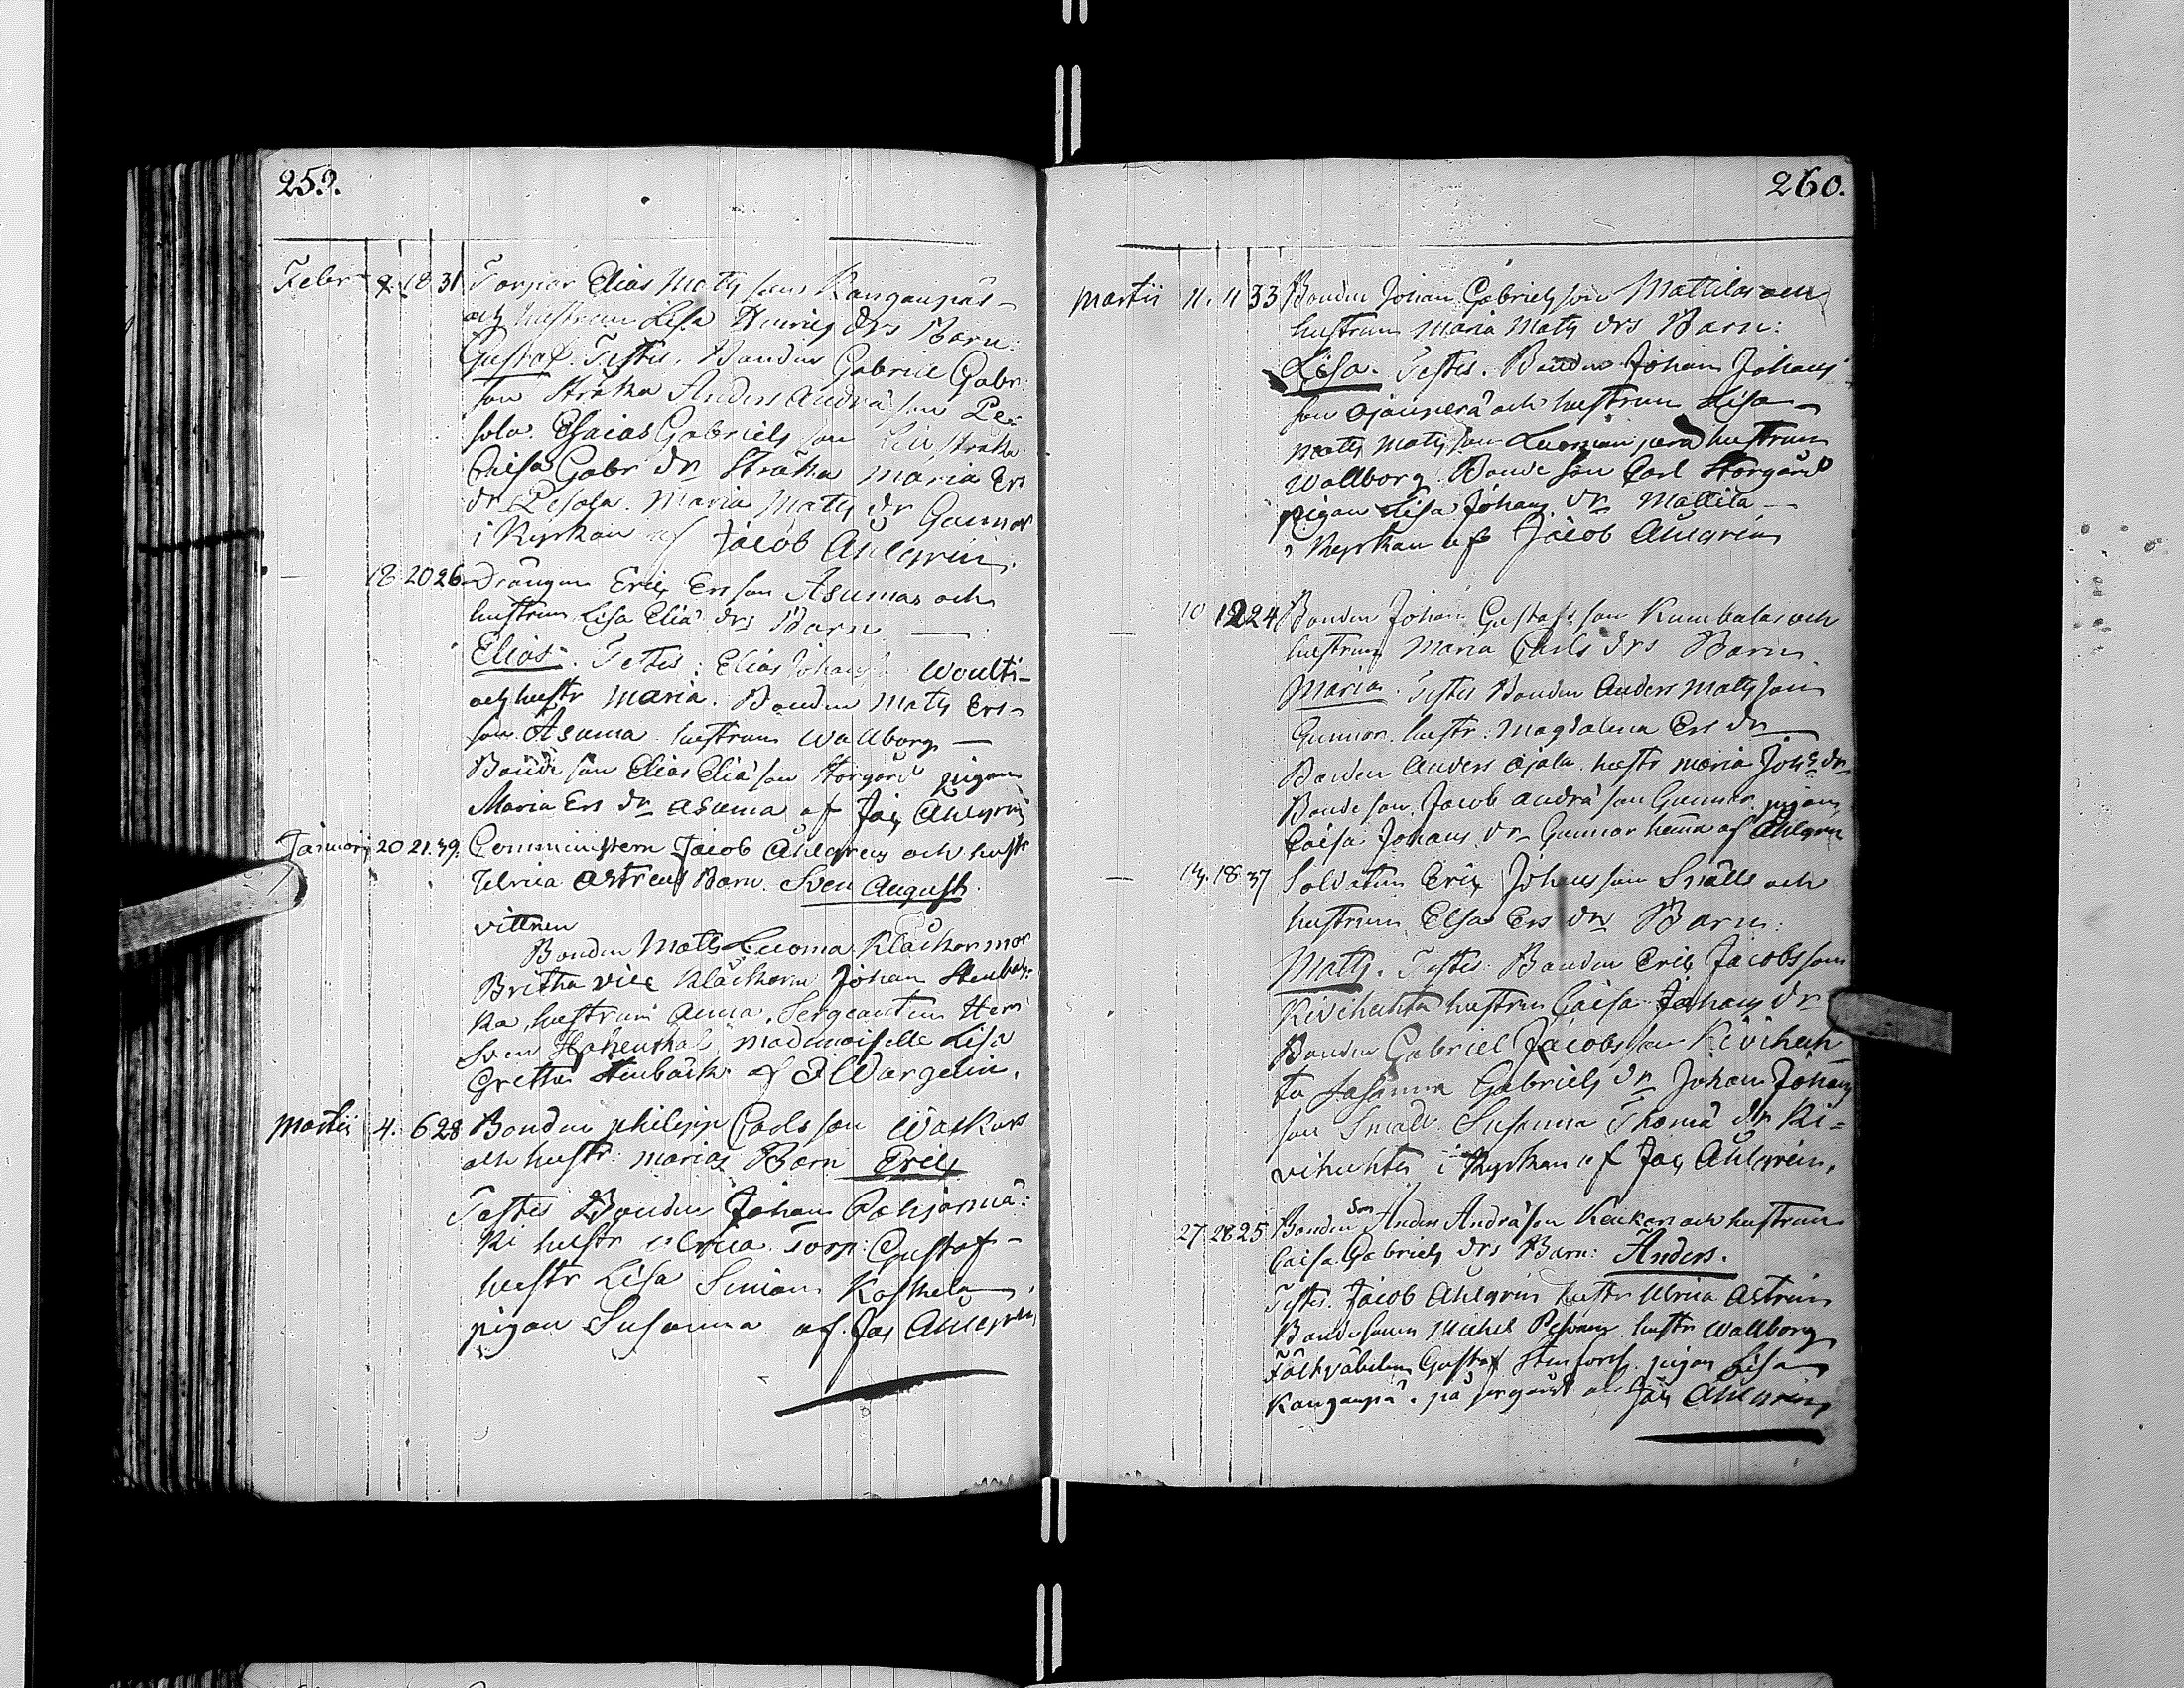 259.
Febr 8. 18 31 Torpar Elias Mats sons Kangaspäs
och hustrun Lisa Henrics drs Barn:
Gustaf. Testes. Bonden Gabriel Gabr:
son Sträka Anders Andrä son Pe-
sola. Esaias Gabriels son Sträka
Caisa Gabr dr Sträka Maria Ers
dr Pesola. Maria Mats dr Gunnar
i Kyrkan af Jacob Ahlgren.
— 18 20 26 Drängen Eric Ersson Asumas och
hustrun Lisa Eliä drs Barn —
Elias. Testes: Elias Johans Woulti-
och hustr Maria. Bonden Mats Ers-
son Asuma hustrun Wallborg —
Bonde son Elias Eliä son Storgård pigan
Maria Ers dr Asuma af Jac Ahlgren
Januarij 20 21. 39. Comministern Jacob Ahlgrens och hustr
Ulrica Astrens Barn. Sven August.
vittnen
Bonden Mats Luoma Klåckarmor
Britha vice Klåckaren Johan Stenbac-
ka, hustrun Anna. Sergeanten Herr
Sven Hohenthal, Mademoiselle Lisa
Gretha Stenback af J Wargelin.
Martii 4. 6 28 Bonden Philipp Carls son Waskars
och hustr: Marias Barn Eric
Testes Bonden Johan Pohjasmä:
ki hustr Ulrica Torp: Gustaf-
hustr Lisa Simon Koskela
pigan Susanna af Jac Ahlgren
260.
Martii 11. 11 33 Bonden Johan Gabriels son Mattilas och
hustrun Maria Mats drs Barn:
Lisa. Testes. Bonden Johan Johans
son Ojanperä och hustrun Lisa —
Mats Mats son Luomanperä hustrun
Wallborg Bonde son Carl Storgård
pigan Lisa Johans dr Mattila —
i Kyrkan af Jacob Ahlgren
— 10 12 24 Bonden Johan Gustafs son Kumbalas och
hustrun Maria Carls drs Barn.
Maria. Testes Bonden Anders Mats son
Gunnar. hustr: Magdalena Ers dr
Bonden Anders Ojala hustr Maria Johs dr
Bonde son Jacob Andrä son Gunnar pigan
Caisa Johans dr Gunnar hema af Ahlgren
— 13. 18 37 Soldaten Eric Johans son Snälls och
hustrun Elsa Ers drs Barn:
Mats. Testes. Bonden Eric Jacobs son
Kivihuhta hustrun Caisa Johans dr
Bonden Gabriel Jacobs son Kivihuh-
ta Susanna Gabriels dr Johan Johans
son Snäll Susanna Thomä dr Ki=
vihuhta i Kyrkan af Jac Ahlgren.
27 28 25 Bonden Son Anders Andrä son Keukas och hustrun
Caisa Gabriels drs Barn: Anders.
Testes. Jacob Ahlgren hustr Ulrica Astren
Bondesonen Michel hustr Wallborg
Fältväbelen Gustaf pigan Lisa
Kangaspä. på af Jac Ahlgren